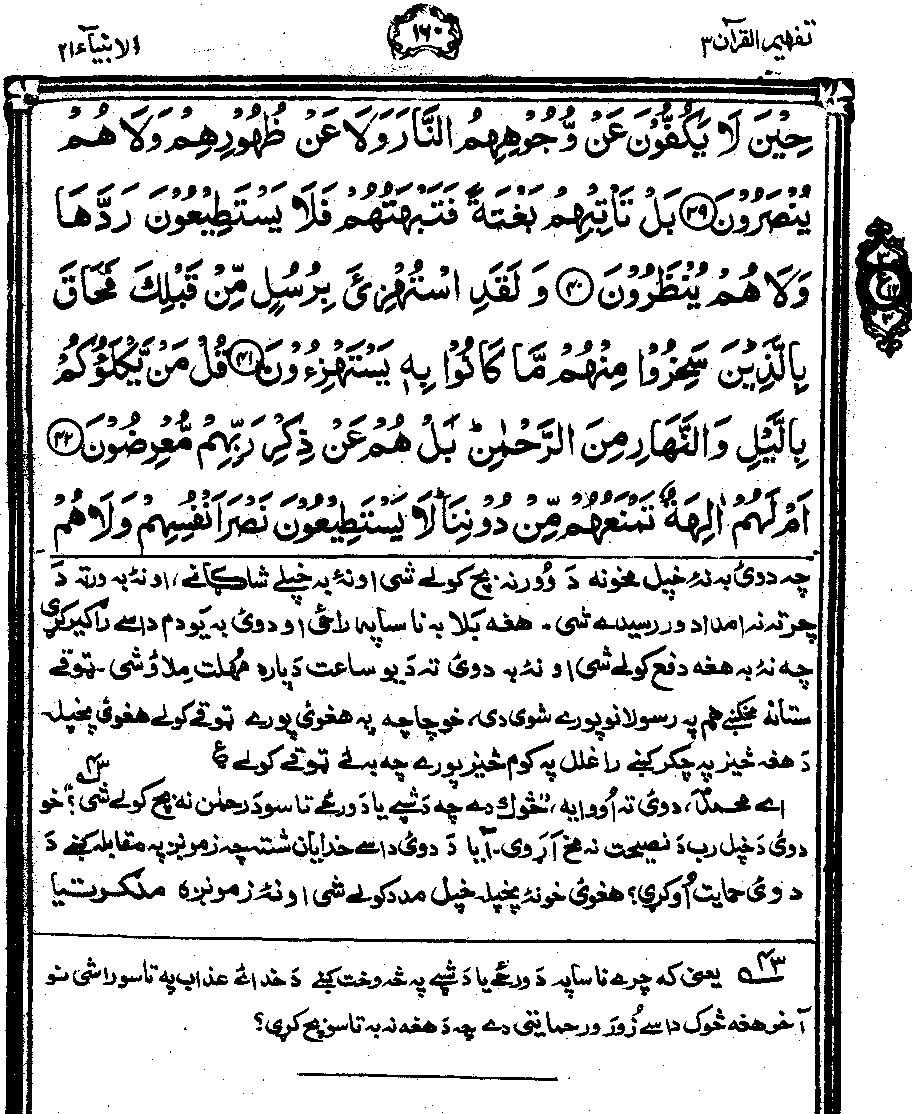 تفهیم القرآن ۳
۱۶۰
الانبیآء ۲۱
حِيْنَ لَا يَكُفُّوْنَ عَنْ وُّجُوْهِهِمُ النَّارَ وَلَا عَنْ ظُهُوْرِهِمْ وَلَا هُمْ
يُنْصَرُوْنَ ﴿۳۹﴾ بَلْ تَاْتِيْهِمْ بَغْتَةً فَتَبْهَتُهُمْ فَلَا يَسْتَطِيْعُوْنَ رَدَّهَا
وَلَا هُمْ يُنْظَرُوْنَ ﴿۴۰﴾ وَ لَقَدِ اسْتُهْزِئَ بِرُسُلٍ مِّنْ قَبْلِكَ فَحَاقَ
بِالَّذِيْنَ سَخِرُوْا مِنْهُمْ مَّا كَانُوْا بِهٖ يَسْتَهْزِءُوْنَ ﴿۴۱﴾ قُلْ مَنْ يَّكْلَؤُكُمْ
بِالَّيْلِ وَالنَّهَارِ مِنَ الرَّحْمٰنِ ؕ بَلْ هُمْ عَنْ ذِكْرِ رَبِّهِمْ مُّعْرِضُوْنَ ﴿۴۲﴾
اَمْ لَهُمْ اٰلِهَةٌ تَمْنَعُهُمْ مِّنْ دُوْنِنَا ؕ لَا يَسْتَطِيْعُوْنَ نَصْرَ اَنْفُسِهِمْ وَلَا هُمْ
چه دوئ به نۀ خپل مخونه دَ وورنه بچ کولے شی او نۀ به خپلے شاګانے، او نۀ به ورته دَ
چرته نه امداد ور رسیدے شی - هغه بلا به ناسایه راځی او دوئ به یو دم داسے راګیر کړی
چه نۀ به هغه دفع کولے شی او نۀ به دوئ ته دَ یو ساعت دَپاره مُهلت مِلاؤ شی - ټوقے
ستانه مخکښے هم په رسولانو پورے شوی دی، خو چا چه په هغوئ پورے ټوقے کولے هغوئ پخپله
دَ هغه څیز په چکر کښے راغلل په کوم څیز پورے چه به ئے ټوقے کولے ع
اے محمدؐ، دوئ ته اُووایه، "څوک دے چه دَ شپے یا دَ ورځے تاسو دَ رحمٰن نه بچ کولے شی؟" ۴۳ خو
دوئ دَ خپل رب دَ نصیحت نه مخ اَړَوی - آیا دَ دوئ داسے خدایان شته چه زمونږ په مقابله کښے دَ
دوئ حمایت اُوکړی؟ هغوئ خو نۀ پخپله خپل مدد کولے شی او نۀ زمونږه
۴۳ یعنی که چرے ناسایه دَ ورځے یا دَ شپے په څه وخت کښے دَ خدائے عذاب په تاسو راشی نو
آخر هغه څوک داسے زورَ ور حمایتی دے چه دَ هغه نه به تاسو بچ کړی؟